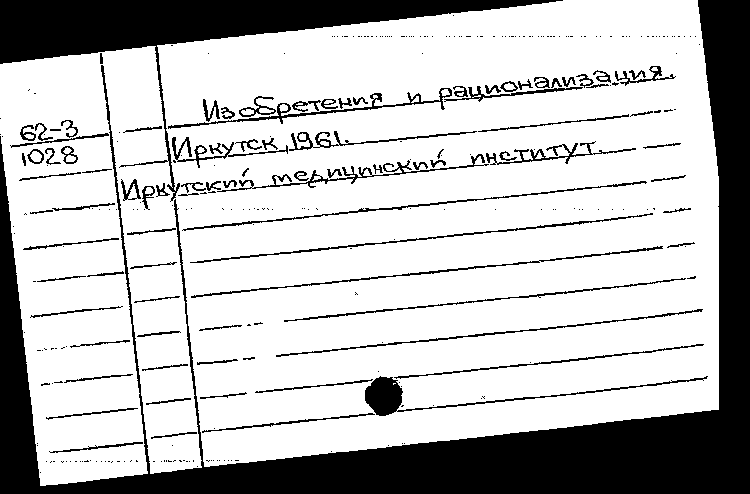 Изобретения и рационализация.
62-3
1028
Иркутск, 1961.
Иркутский медицинский институт.